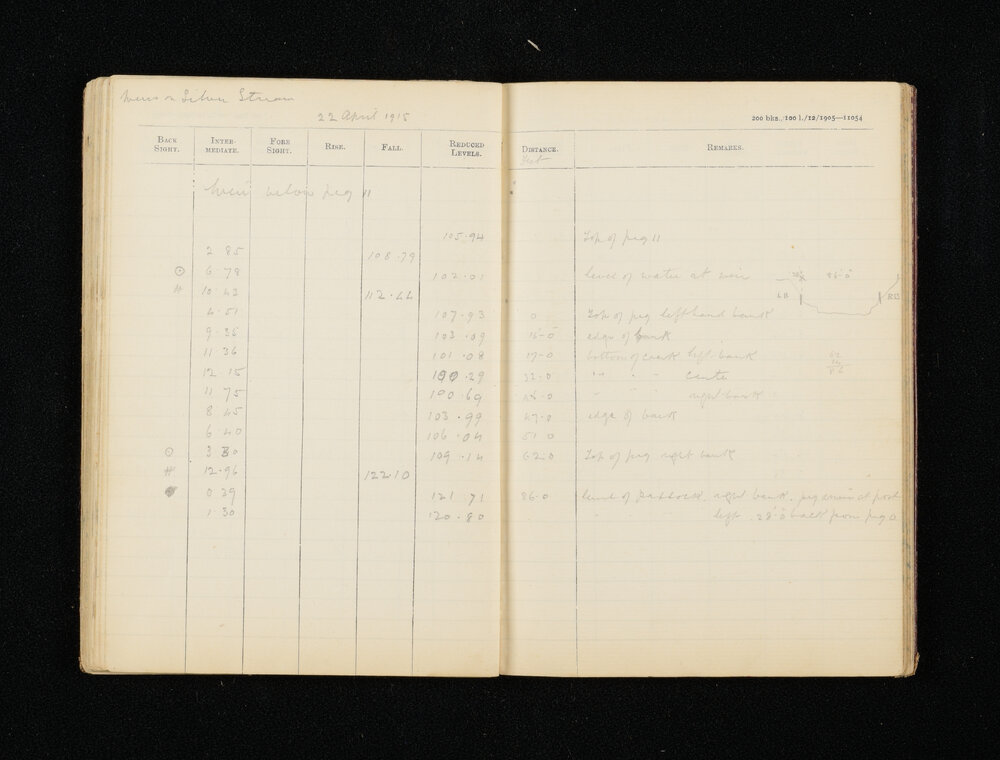 Weirs on Silver Stream
22 April 1915
200 bks., 100 l./12/1905—11054
BACK SIGHT. INTER-MEDIATE. FORE SIGHT. RISE. FALL. REDUCED LEVELS. DISTANCE. REMARKS.
Feet
Weir below peg 11
105.94 Top of peg 11
2 85 108.79
⊙ 6.78 102.01 level of water at weir
# 10.43 112.44
4.51 107.93 0 Top of peg left hand bank
9.35 103.09 16-0 edge of bank
11 36 101.08 17-0 bottom of bank left bank
12.15 100.29 32.0 " " " center
11 75 100.69 46.0 " " " right bank
8 45 103.99 47.0 edge of bank
6 40 106.04 51 0
⊙ 3 30 109.14 62.0 Top of peg right bank
# 12.96 122.10
0 39 121.71 86.0 level of paddock right bank. peg at post
1.30 120.80 " " left 28'.0" back from peg 0
LB 86'-0" RB
62
24
86